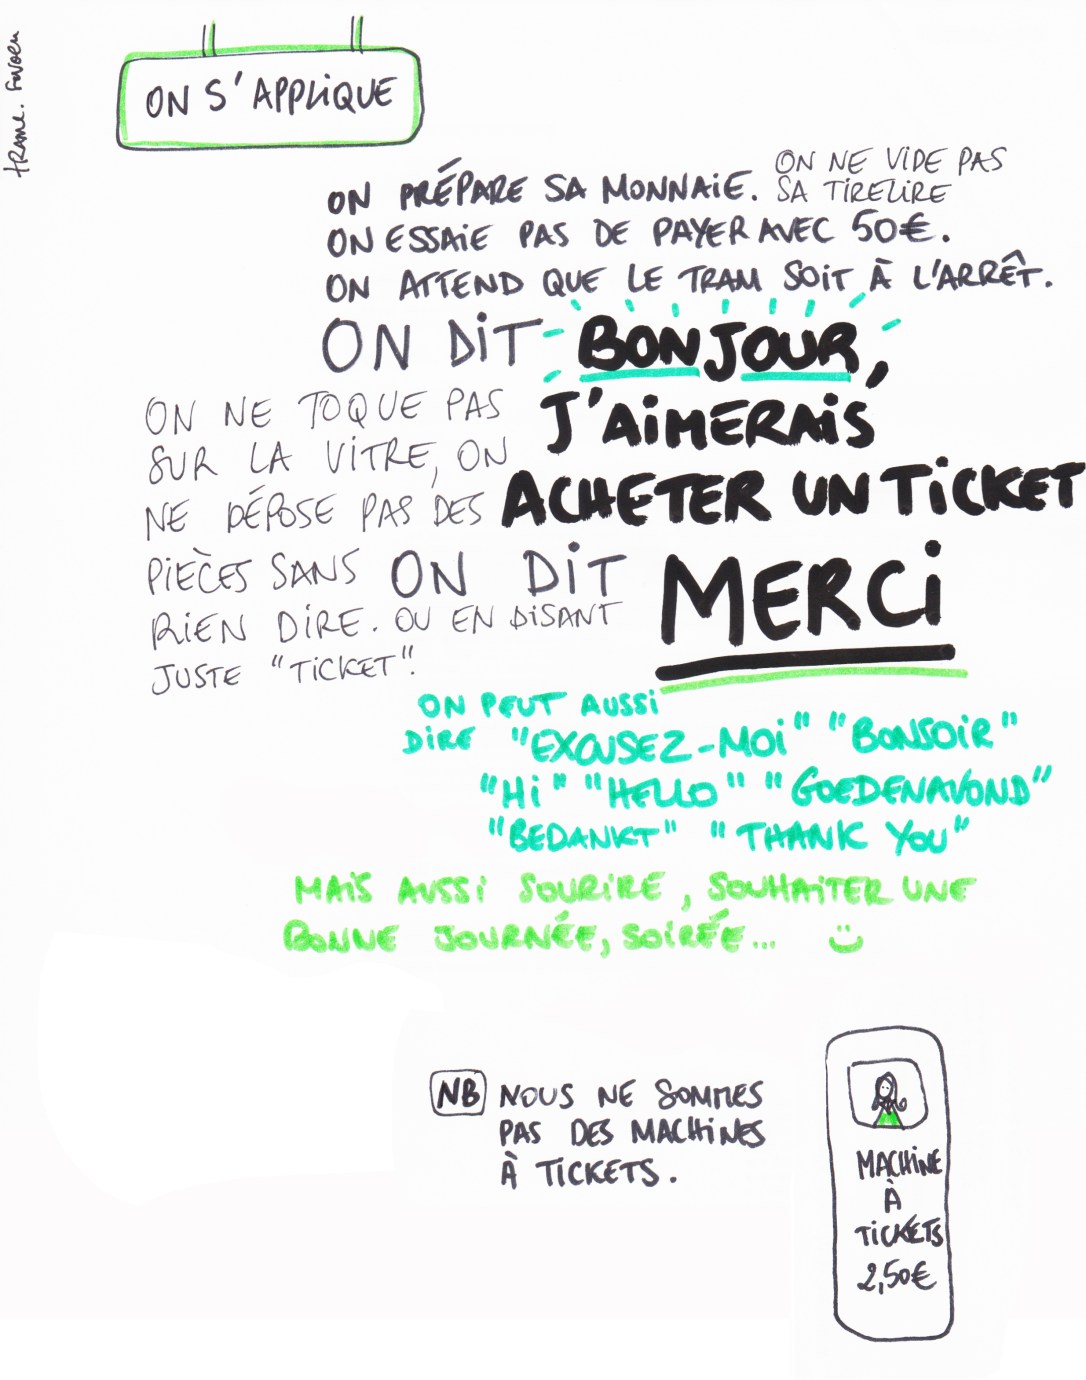 ON S'APPLiQUE
ON PRÉPARE SA MONNAiE. ON NE VIDE PAS
SA TiRELiRE
ON ESSAiE PAS DE PAYER AVEC 50€.
ON ATTEND QUE LE TRAM SOiT À L'ARRÊT.
ON DiT BONJOUR,
J'AiMERAiS
ACHETER UN TiCKET
ON NE TOQUE PAS
SUR LA ViTRE, ON
NE DÉPOSE PAS DES
PiÈCES SANS
RiEN DiRE. OU EN DiSANT
JUSTE "TiCKET".
ON DiT MERCi
ON PEUT AUSSi
DiRE "EXCUSEZ-MOi" "BONSOiR"
"Hi" "HELLO" "GOEDENAVOND"
"BEDANKT" "THANK YOU"
MAiS AUSSi SOURiRE, SOUHAiTER UNE
BONNE JOURNÉE, SOiRÉE...
NB NOUS NE SOMMES
PAS DES MACHiNES
À TiCKETS.
MACHiNE
À
TiCKETS
2,50€